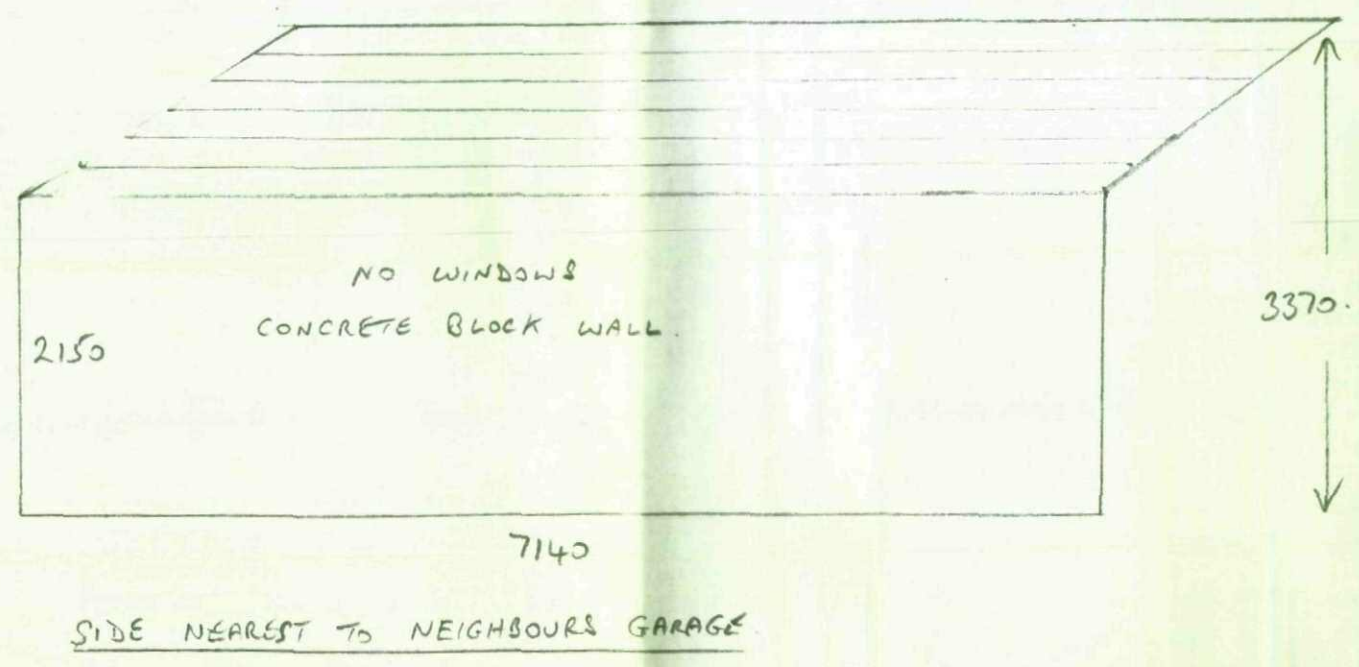 NO WINDOWS
CONCRETE BLOCK WALL.
2150
3370.
7140
SIDE NEAREST TO NEIGHBOURS GARAGE.